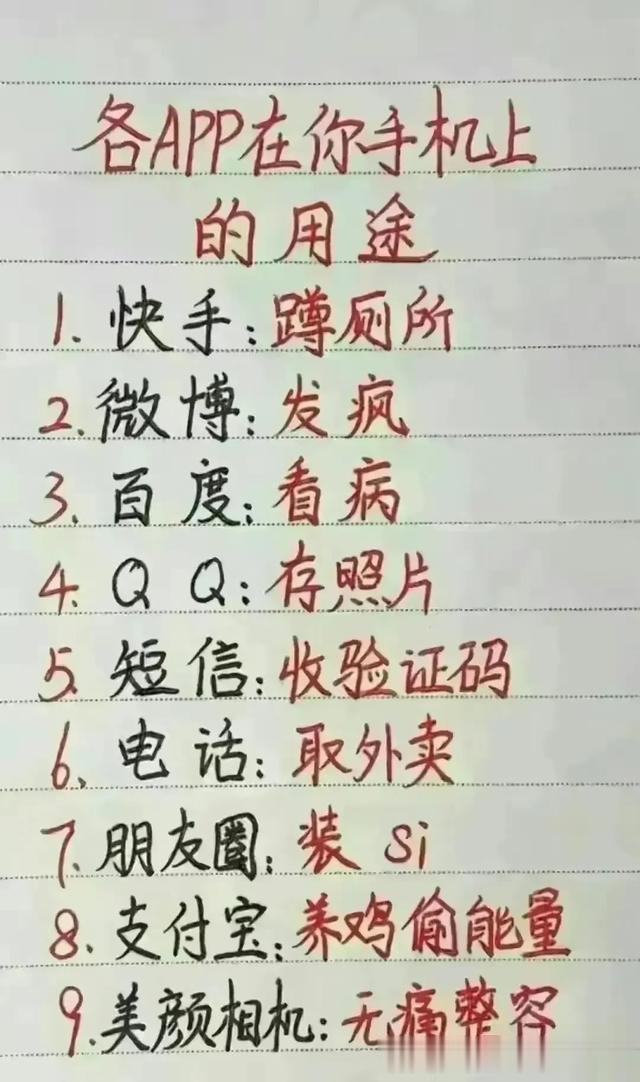 各APP在你手机上
的用途
1. 快手:蹲厕所
2. 微博:发疯
3. 百度:看病
4. QQ:存照片
5. 短信:收验证码
6、电话:取外卖
7. 朋友圈:装 si
8. 支付宝:养鸡偷能量
9. 美颜相机:无痛整容